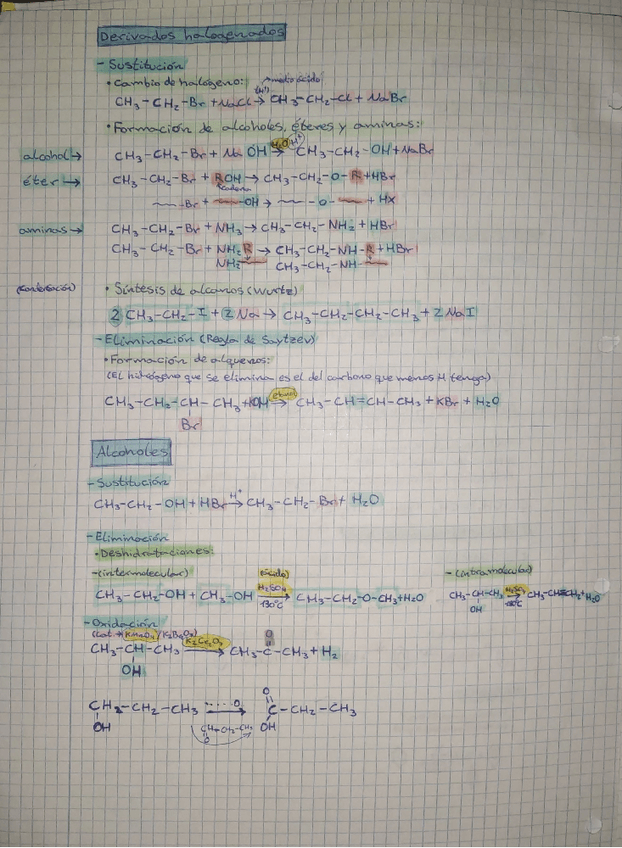 Derivados halogenados
- Sustitución
• Cambio de halógeno: (H⁺) → medio ácido
CH₃-CH₂-Br + NaCl → CH₃-CH₂-Cl + NaBr
• Formación de alcoholes, éteres y aminas:
alcohol → CH₃-CH₂-Br + Na OH H₂O H⁺ → CH₃-CH₂-OH + NaBr
éter → CH₃-CH₂-Br + ROH → CH₃-CH₂-O-R + HBr
cadena
Br + OH → -O- + HX
aminas → CH₃-CH₂-Br + NH₃ → CH₃-CH₂-NH₂ + HBr
CH₃-CH₂-Br + NH₂R → CH₃-CH₂-NH-R + HBr
NH₂ CH₃-CH₂-NH-
• Síntesis de alcanos (Wurtz)
2 CH₃-CH₂-I + 2 Na → CH₃-CH₂-CH₂-CH₃ + 2 NaI
- Eliminación (Regla de Saytzev)
• Formación de alquenos:
(El hidrógeno que se elimina es el del carbono que menos H tenga)
CH₃-CH₂-CH-CH₃ + KOH etanol → CH₃-CH=CH-CH₃ + KBr + H₂O
Br
Alcoholes
- Sustitución
CH₃-CH₂-OH + HBr H⁺ → CH₃-CH₂-Br + H₂O
- Eliminación
• Deshidrataciones:
- (intermolecular) (ácido) - (intramolecular)
CH₃-CH₂-OH + CH₃-OH H₂SO₄ 130°C → CH₃-CH₂-O-CH₃ + H₂O CH₃-CH-CH₃ H₂SO₄ → CH₃-CH=CH₂ + H₂O
OH
- Oxidación
(cat. → KMnO₄ / K₂Cr₂O₇)
CH₃-CH-CH₃ K₂Cr₂O₇ → CH₃-C-CH₃ + H₂
OH O
CH₂-CH₂-CH₃ → C-CH₂-CH₃
OH O OH